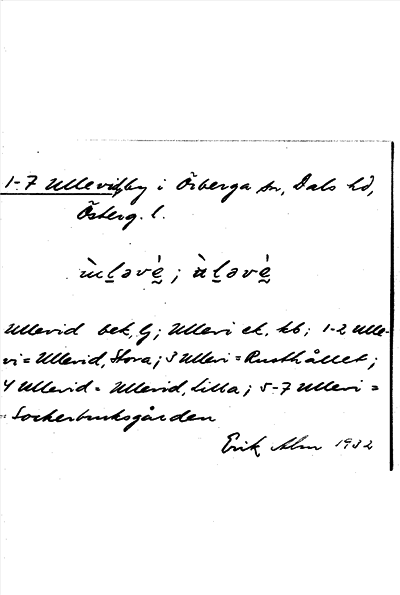 1-7 Ullevid, by i Örberga sn, Dals hd,
Österg. l.
ùḻəvè̱; ùḻəvè̱
Ullevid bet, G; Ulleri et, kb; 1-2 Ulle-
vi = Ullevid, Stora; 3 Ulleri = Rusthållet;
4 Ullevid = Ullevid, Lilla; 5-7 Ulleri =
= Sockerbruksgården
Erik Alm 1932